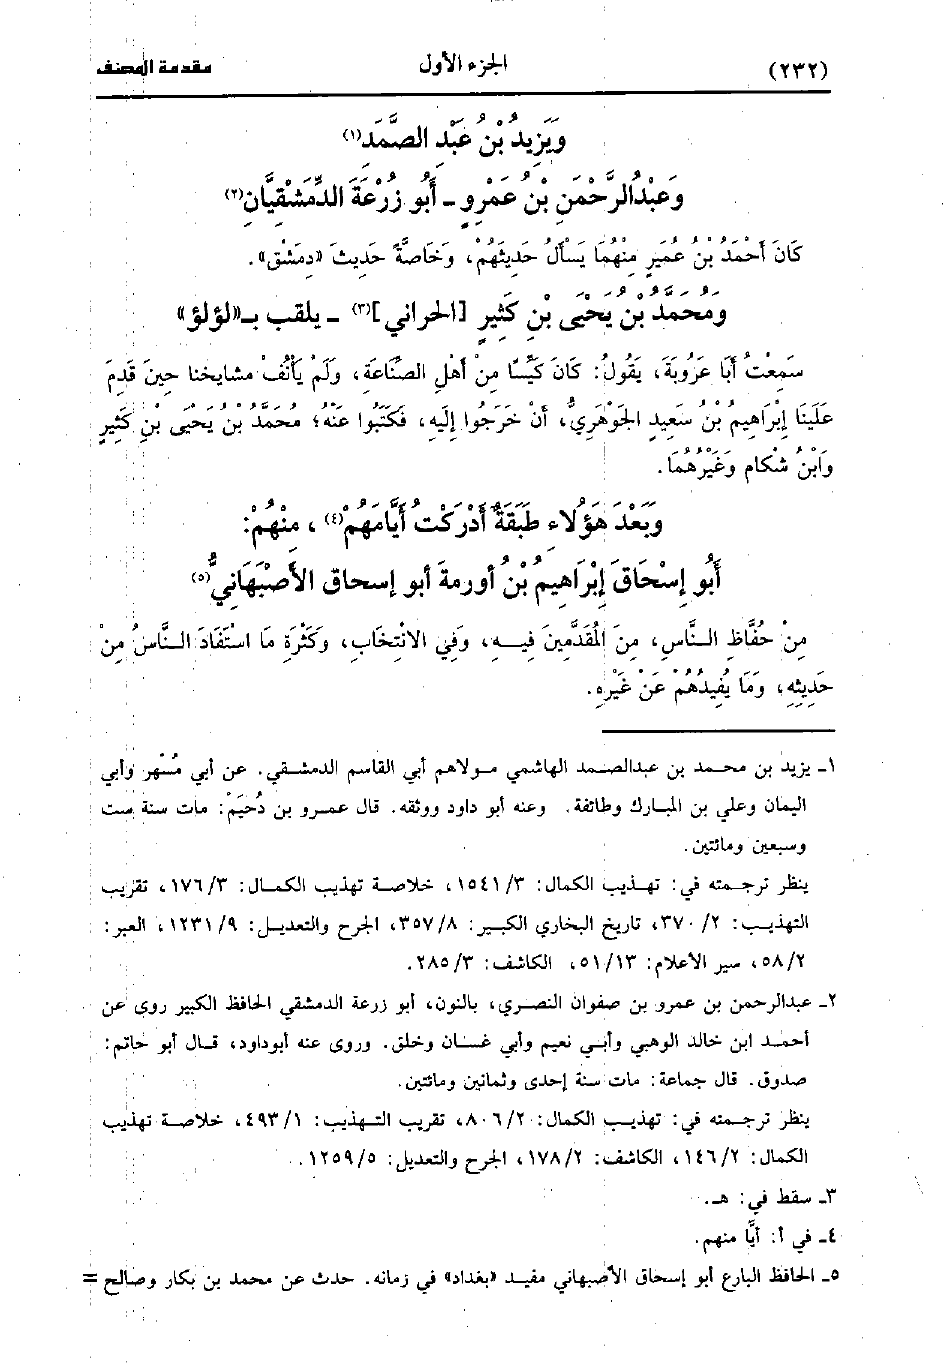 (٢٣٢) الجزء الأول مقدمة المصنف
وَيَزِيدُ بْنُ عَبْدِ الصَّمَدِ(١)
وَعَبْدُالرَّحْمَنِ بْنُ عَمْرٍو - أَبُو زُرْعَةَ الدِّمَشْقِيَّان(٢)
كَانَ أَحْمَدُ بْنُ عُمَيرٍ مِنْهُمَا يَسْأَلُ حَدِيثَهُمْ، وَخَاصَّةً حَدِيثَ «دِمَشْق».
وَمُحَمَّدُ بْنُ يَحْيَى بْنِ كَثِيرٍ [الحراني](٣) - يلقب بـ«لؤلؤ»
سَمِعْتُ أَبَا عَرُوبَةَ، يَقُولُ: كَانَ كَيِّسًا مِنْ أَهْلِ الصِّنَاعَةِ، وَلَمْ يَأْنَفْ مشايخنا حِينَ قَدِمَ
عَلَيْنَا إِبْرَاهِيمُ بْنُ سَعِيدٍ الجَوْهَرِيُّ، أَنْ خَرَجُوا إِلَيهِ، فَكَتَبُوا عَنْهُ؛ مُحَمَّدُ بْنُ يَحْيَى بْنِ كَثِيرٍ
وَابْنُ شكام وَغَيْرُهُمَا.
وَبَعْدَ هَؤُلاء طَبَقَةٌ أَدْرَكْتُ أَيَّامَهُمْ(٤) ، مِنْهُمْ:
أَبُو إِسْحَاقَ إِبْرَاهِيمُ بْنُ أورمة أبو إسحاق الأَصْبَهَانِيُّ(٥)
مِنْ حُفَّاظِ النَّاسِ، مِنَ المُقَدَّمِينَ فِيهِ، وَفِي الانْتِخَابِ، وَكَثْرَةِ مَا اسْتَفَادَ النَّاسُ مِنْ
حَدِيثِهِ، وَمَا يُفِيدُهُمْ عَنْ غَيْرِهِ.
١- يزيد بن محمد بن عبدالصمد الهاشمي مولاهم أبي القاسم الدمشقي. عن أبي مُسْهر وأبي
اليمان وعلي بن المبارك وطائفة. وعنه أبو داود ووثقه. قال عمرو بن دُحَيْم: مات سنة ست
وسبعين ومائتين.
ينظر ترجمته في: تهذيب الكمال: ٣/ ١٥٤١، خلاصة تهذيب الكمال: ٣/ ١٧٦، تقريب
التهذيب: ٢/ ٣٧٠، تاريخ البخاري الكبير: ٨/ ٣٥٧، الجرح والتعديل: ٩/ ١٢٣١، العبر:
٢/ ٥٨، سير الأعلام: ١٣/ ٥١، الكاشف: ٣/ ٢٨٥.
٢- عبدالرحمن بن عمرو بن صفوان النصري، بالنون، أبو زرعة الدمشقي الحافظ الكبير روى عن
أحمد ابن خالد الوهبي وأبي نعيم وأبي غسان وخلق. وروى عنه أبوداود، قال أبو حاتم:
صدوق. قال جماعة: مات سنة إحدى وثمانين ومائتين.
ينظر ترجمته في: تهذيب الكمال: ٢/ ٨٠٦، تقريب التهذيب: ١/ ٤٩٣، خلاصة تهذيب
الكمال: ٢/ ١٤٦، الكاشف: ٢/ ١٧٨، الجرح والتعديل: ٥/ ١٢٥٩.
٣- سقط في: هـ.
٤- في أ: أيَّا منهم.
٥- الحافظ البارع أبو إسحاق الأصبهاني مفيد «بغداد» في زمانه. حدث عن محمد بن بكار وصالح =